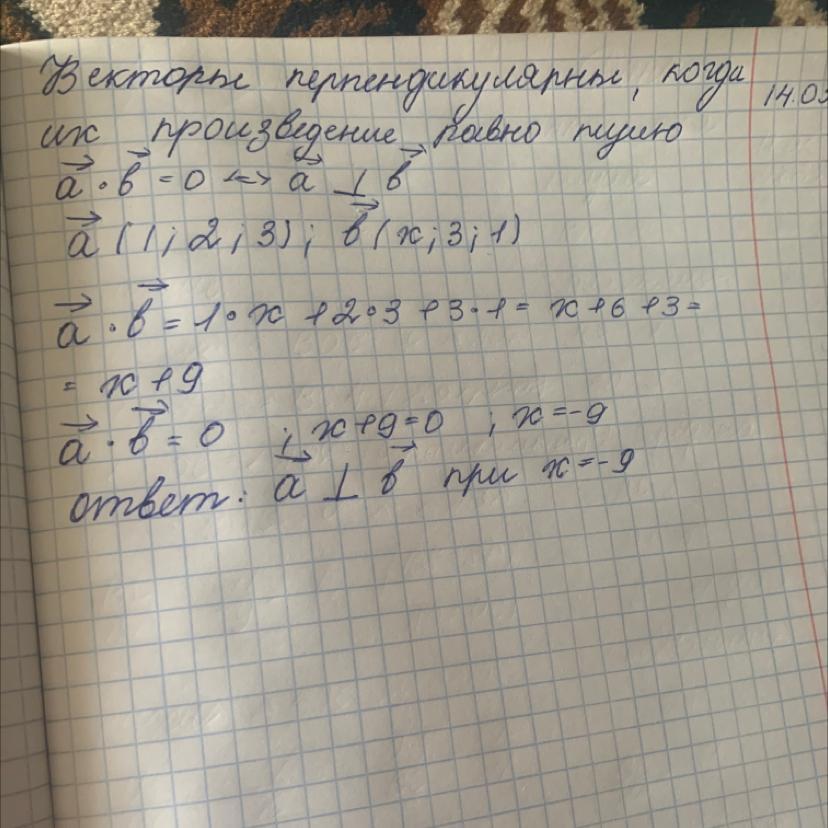 Векторы перпендикулярны, когда
14.03
их произведение равно нулю
a⃗ · b⃗ = 0 <=> a⃗ ⊥ b⃗
a⃗ (1; 2; 3); b⃗ (x; 3; 1)
a⃗ · b⃗ = 1 · x + 2 · 3 + 3 · 1 = x + 6 + 3 =
= x + 9
a⃗ · b⃗ = 0 ; x + 9 = 0 ; x = -9
ответ: a⃗ ⊥ b⃗ при x = -9